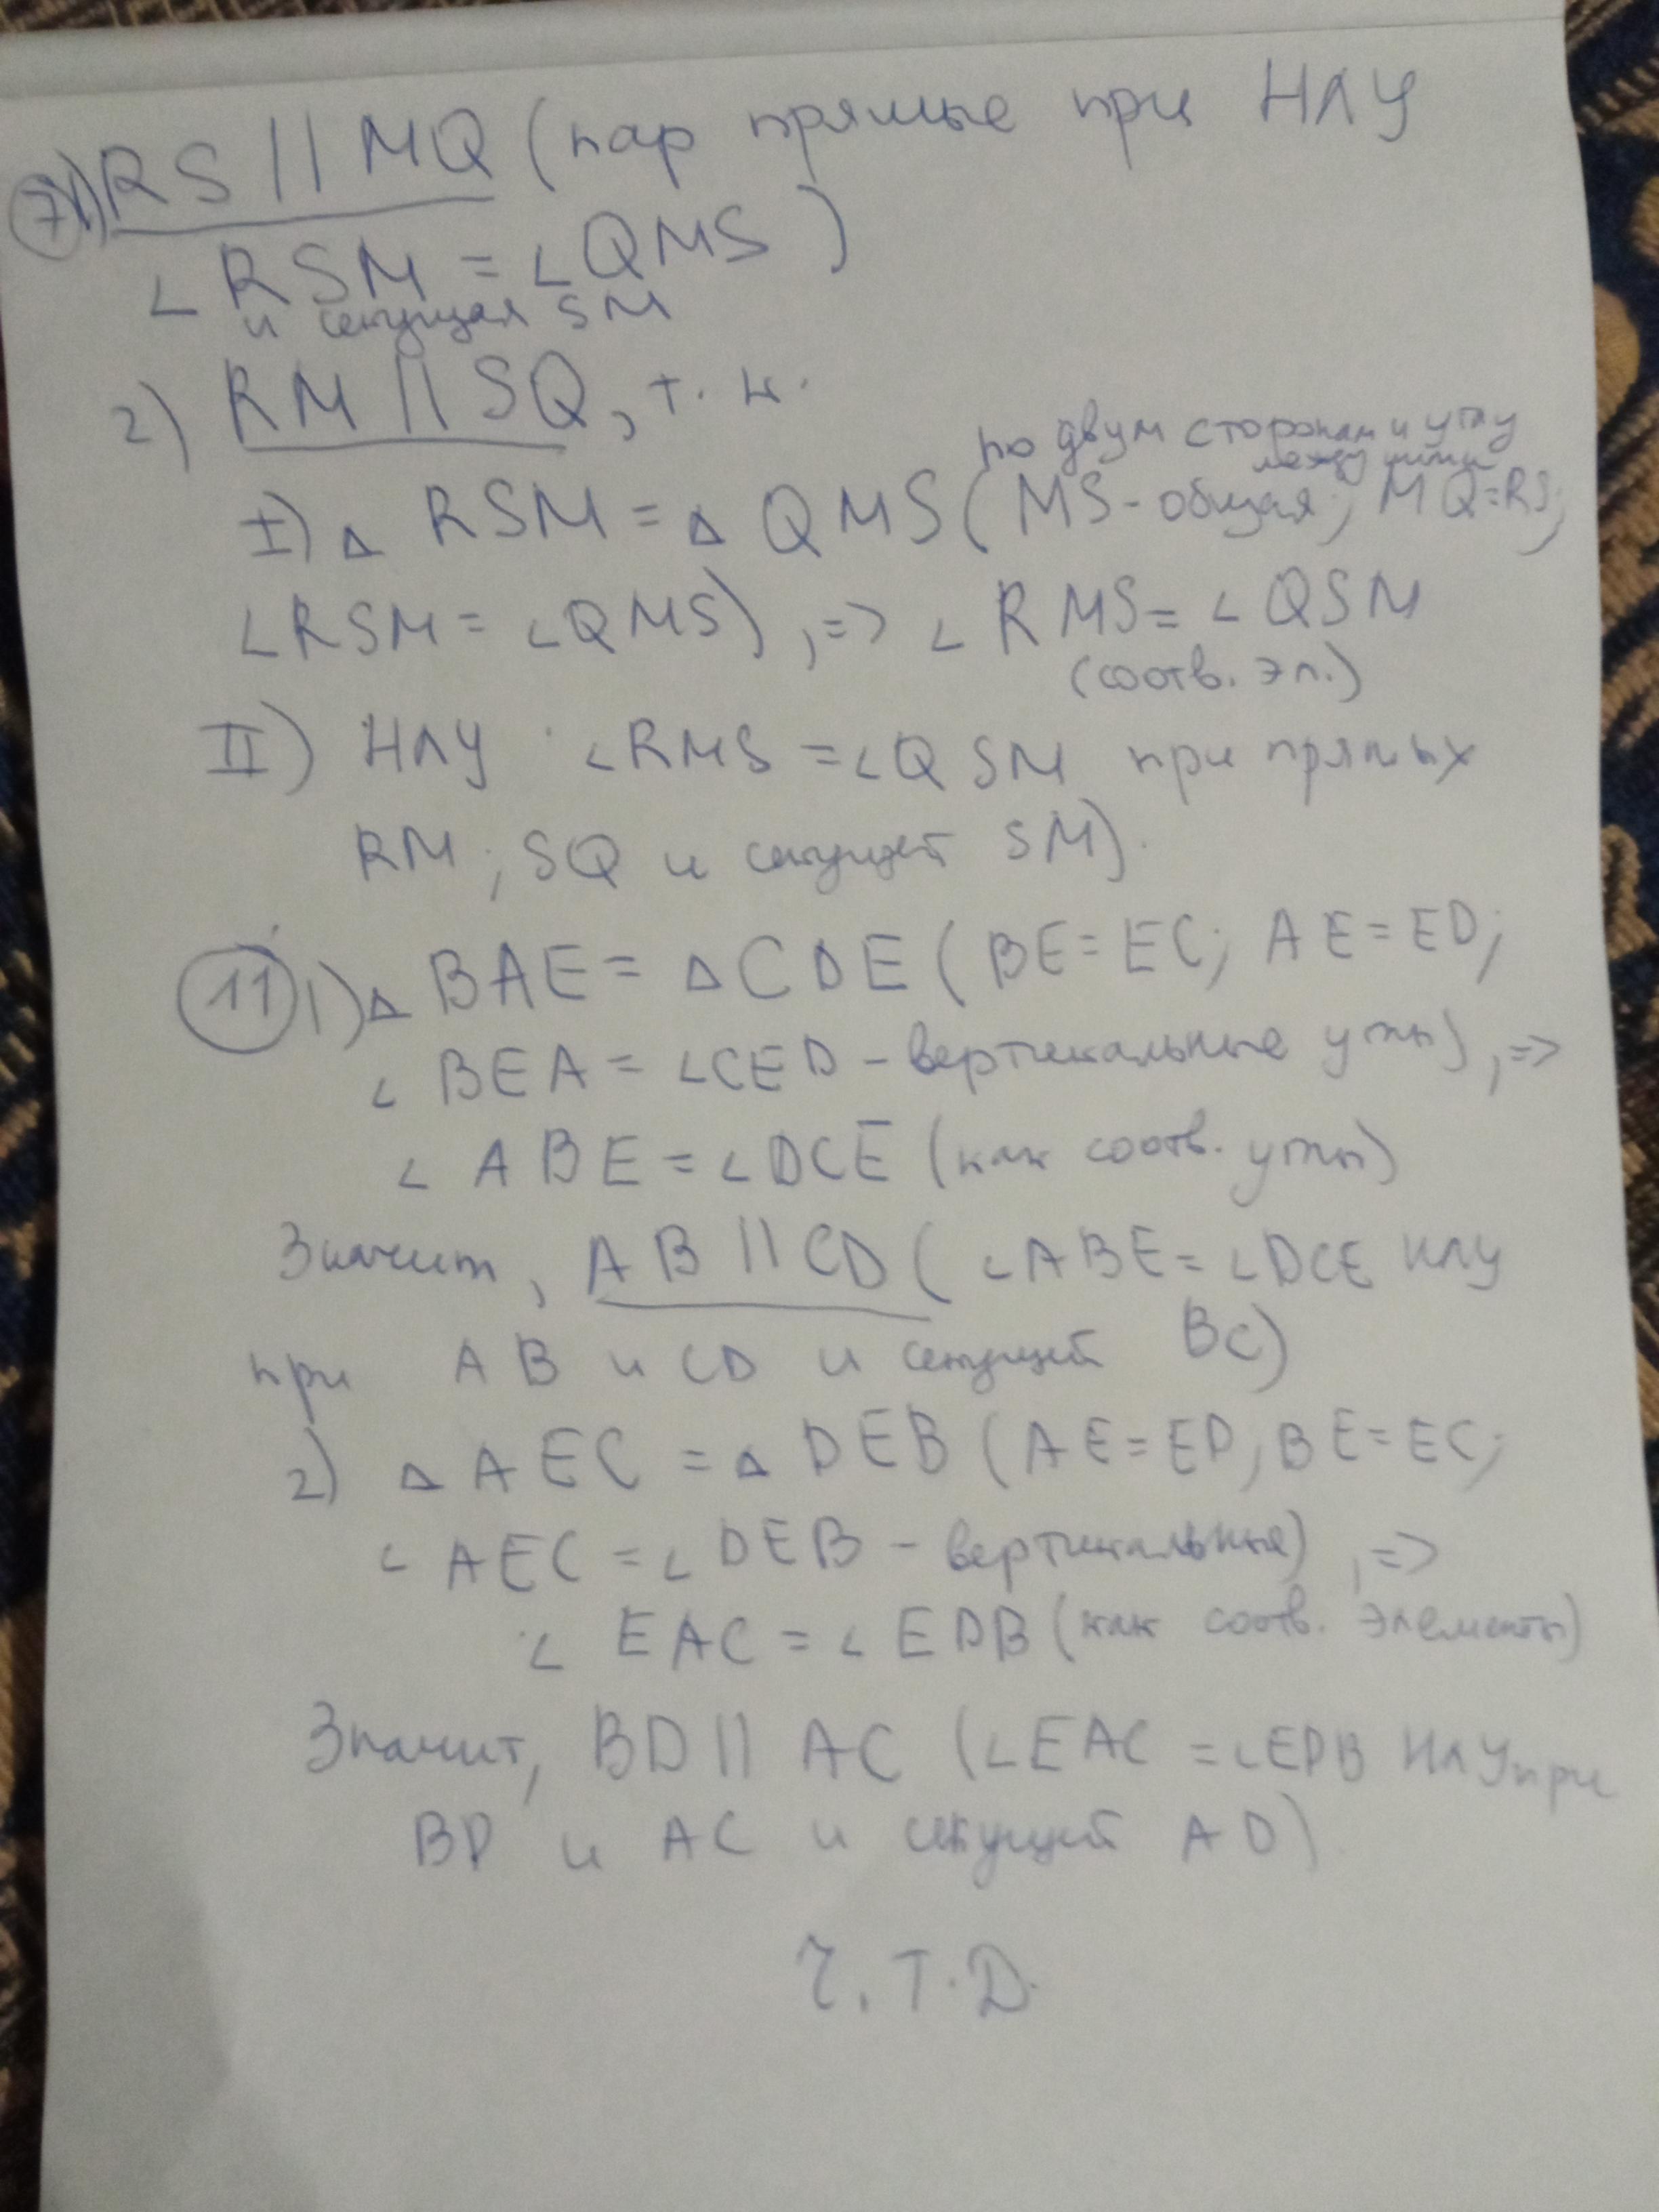 7 1) RS || MQ (пар прямые при НЛУ
∠RSM = ∠QMS)
и секущая SM
2) RM || SQ, т. к.
по двум сторонам и углу
между ними
I) △ RSM = △ QMS (MS - общая; MQ = RS;
∠RSM = ∠QMS), => ∠RMS = ∠QSM
(соотв. эл.)
II) НЛУ ∠RMS = ∠QSM при прямых
RM; SQ и секущей SM).
11 1) △ BAE = △ CDE (BE = EC; AE = ED;
∠BEA = ∠CED - вертикальные углы), =>
∠ABE = ∠DCE (как соотв. углы)
Значит, AB || CD (∠ABE = ∠DCE НЛУ
при AB и CD и секущей BC)
2) △ AEC = △ DEB (AE = ED, BE = EC;
∠AEC = ∠DEB - вертикальные), =>
∠EAC = ∠EDB (как соотв. элементы)
Значит, BD || AC (∠EAC = ∠EDB НЛУ при
BD и AC и секущей AD)
Ч.Т.Д.